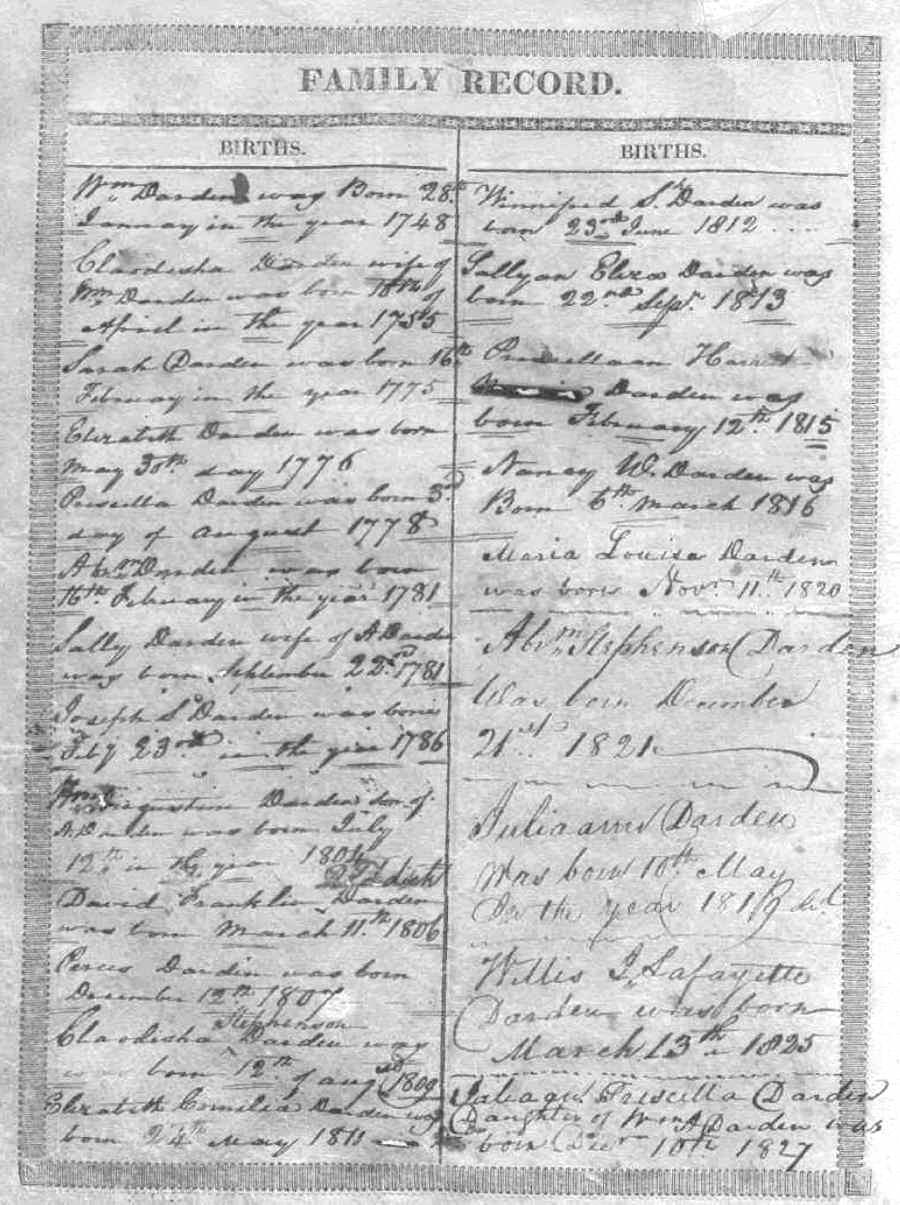 FAMILY RECORD.
BIRTHS.
Wm Darden was Born 28th
January in the year 1748
Claodisha Darden wife of
Wm Darden was born 18th of
April in the year 1755
Sarah Darden was born 16th
February in the year 1775
Elizabeth Darden was born
may 30th day 1776
Priscilla Darden was born 3rd
day of august 1778
Abrm Darden was born
16th February in the year 1781
Sally Darden wife of A Darden
was born September 22nd 1781
Joseph S Darden was born
Feby 23rd in the year 1786
Augustine Darden son of
A Darden was born July
12th in the year 1804
David Franklin Darden
was born March 11th 1806
Perces Darden was born
December 12th 1807
Stephenson
Claodisha Darden was
born 12th of augst 1809
Elizabeth Cornelia Darden was
born 24th May 1811
BIRTHS.
Winnifred S. Darden was
born 23rd June 1812
Sallyan Eliza Darden was
born 22nd Sepr 1813
Priscillaan Harriet
Darden was
born February 12th 1815
Nancy W. Darden was
Born 6th March 1816
Maria Louisa Darden
was born Novr 11th 1820
Abrm Stephenson Darden
Was born December
21st 1821
Juliaann Darden
Was born 10th May
In the year 1819
Willis J. Lafayette
Darden was born
March 13th 1825
Priscilla Darden
Daughter of Wm A Darden was
born Decr 10th 1827